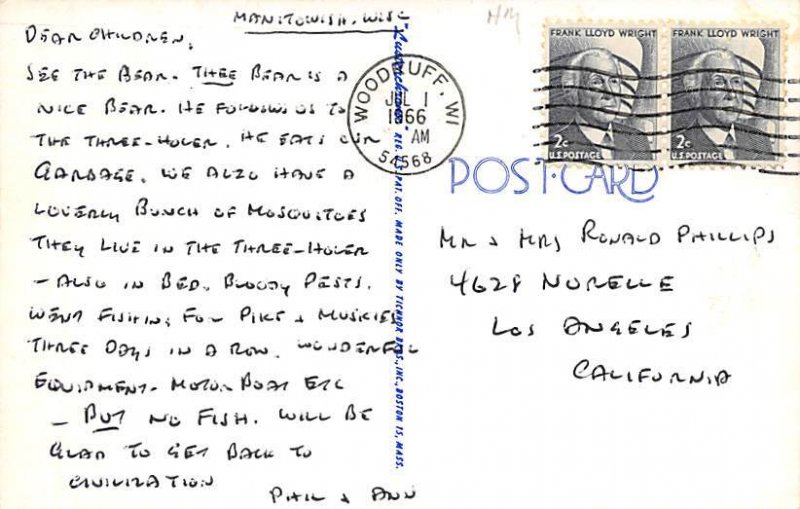 MANITOWISH, WISC
DEAR CHILDREN,
SEE THE BEAR. THEE BEAR IS A
NICE BEAR. HE FOLLOWS US TO
THE THREE-HOLER. HE EATS OUR
GARBAGE. WE ALSO HAVE A
LOVERLY BUNCH OF MOSQUITOES
THEY LIVE IN THE THREE-HOLER
— ALSO IN BED. BLOODY PESTS.
WENT FISHING FOR PIKE & MUSKIES
THREE DAYS IN A ROW. WONDERFUL
EQUIPMENT - MOTOR BOAT ETC
— BUT NO FISH. WILL BE
GLAD TO GET BACK TO
CIVILIZATION
PHIL & ANN
"Lusterchrome" REG. U.S. PAT. OFF. MADE ONLY BY TICHNOR BROS., INC., BOSTON 15, MASS.
WOODRUFF, WI
JUL 1
1966
AM
54568
FRANK LLOYD WRIGHT
2c
U.S. POSTAGE
FRANK LLOYD WRIGHT
2c
U.S. POSTAGE
POST CARD
MR & MRS RONALD PHILLIPS
4628 NORELLE
LOS ANGELES
CALIFORNIA